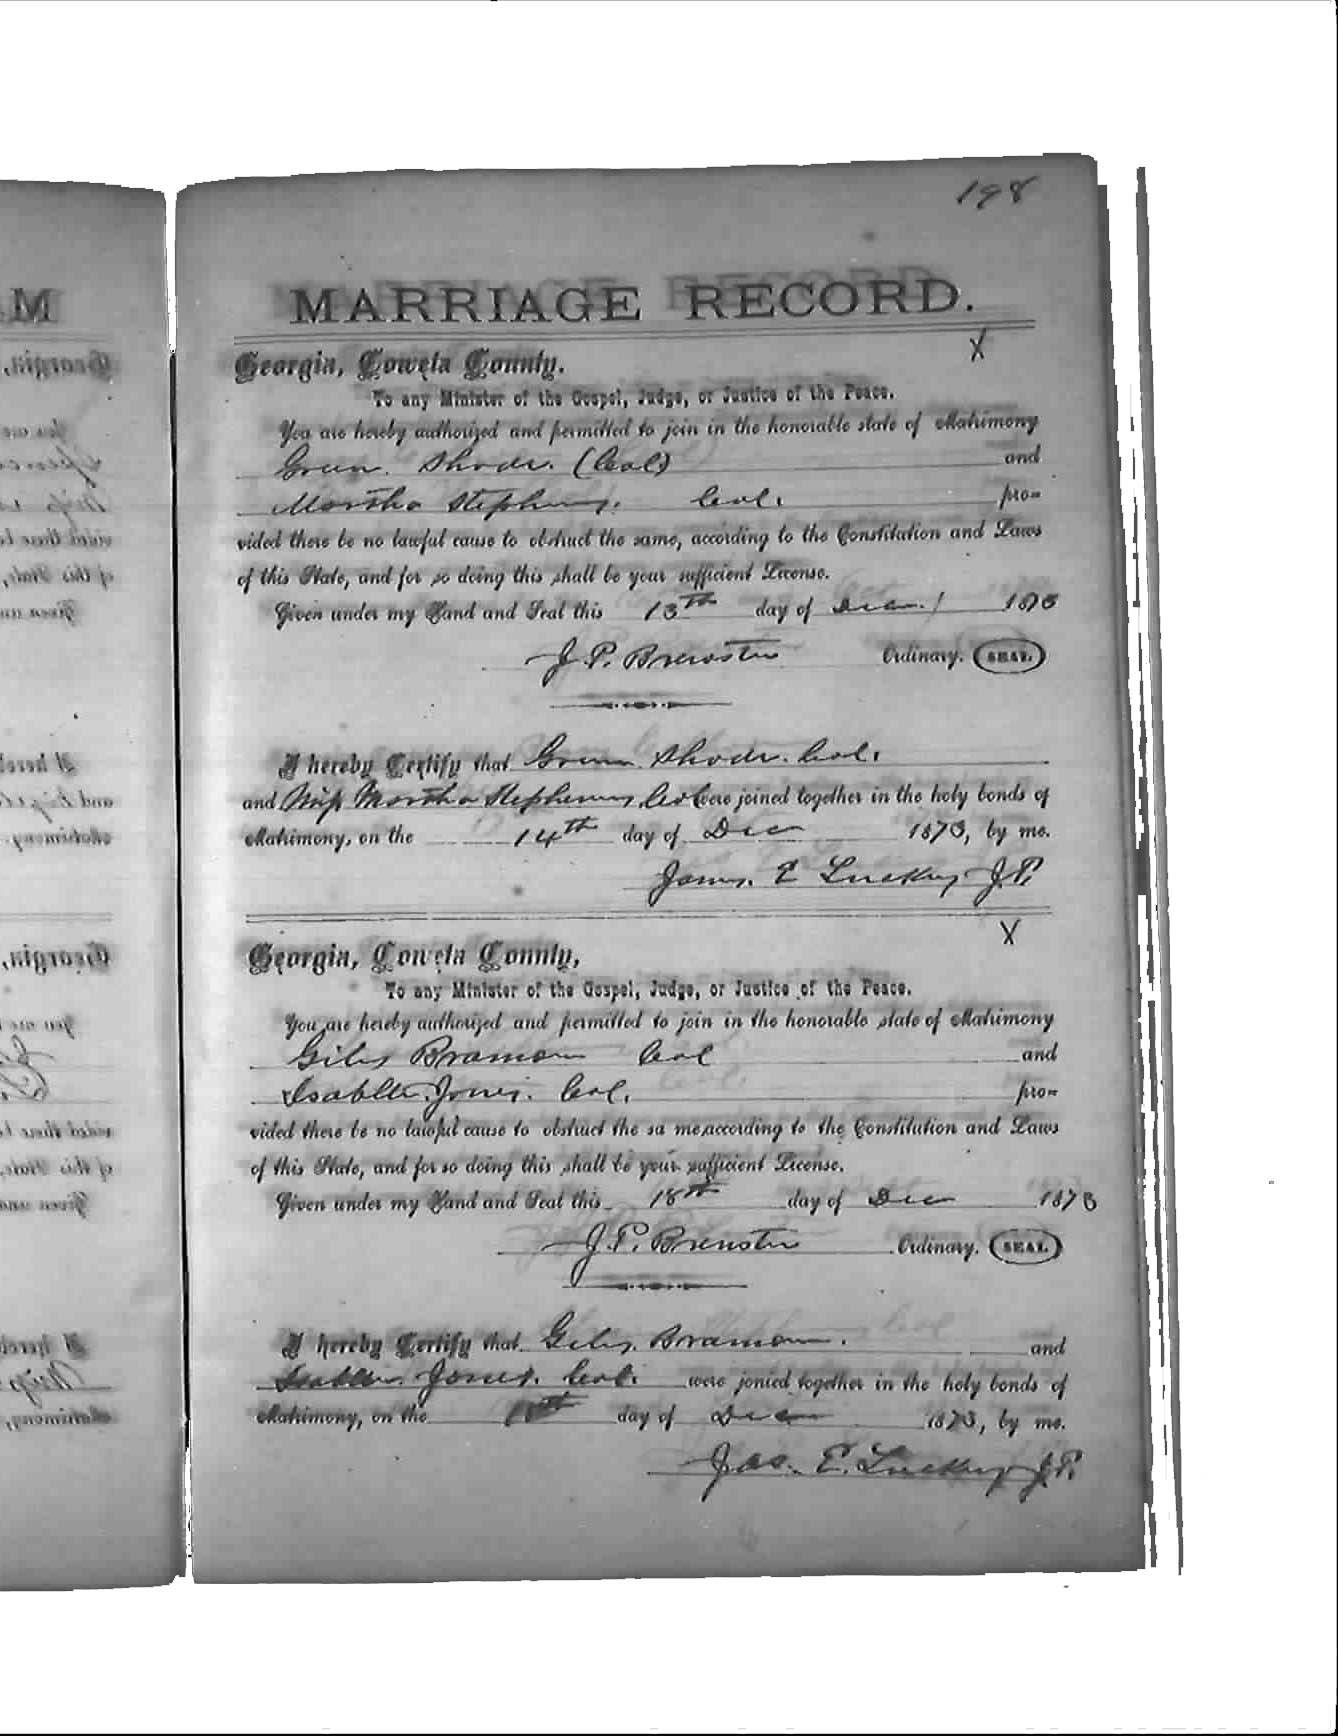 198
MARRIAGE RECORD.
X
Georgia, Coweta County.
To any Minister of the Gospel, Judge, or Justice of the Peace.
You are hereby authorized and permitted to join in the honorable state of Matrimony
Green Shods. (Col) and
Martha Stephens. Col. pro-
vided there be no lawful cause to obstruct the same, according to the Constitution and Laws
of this State, and for so doing this shall be your sufficient License.
Given under my Hand and Seal this 13th day of Dec. 1873
J. P. Brewster Ordinary. SEAL.
I hereby Certify that Green Shods. Col.
and Miss Martha Stephens, Col were joined together in the holy bonds of
Matrimony, on the 14th day of Dec 1873, by me.
James. E Luckey J.P.
X
Georgia, Coweta County,
To any Minister of the Gospel, Judge, or Justice of the Peace.
You are hereby authorized and permitted to join in the honorable state of Matrimony
Giles Bramon Col and
Isabella Jones. Col. pro-
vided there be no lawful cause to obstruct the sa me, according to the Constitution and Laws
of this State, and for so doing this shall be your sufficient License.
Given under my Hand and Seal this 18th day of Dec 1873
J. P. Brewster Ordinary. SEAL.
I hereby Certify that Giles. Bramon. and
Isabella Jones. Col. were jonied together in the holy bonds of
Matrimony, on the 18th day of Dec 1873, by me.
Jas. E. Luckey J.P.